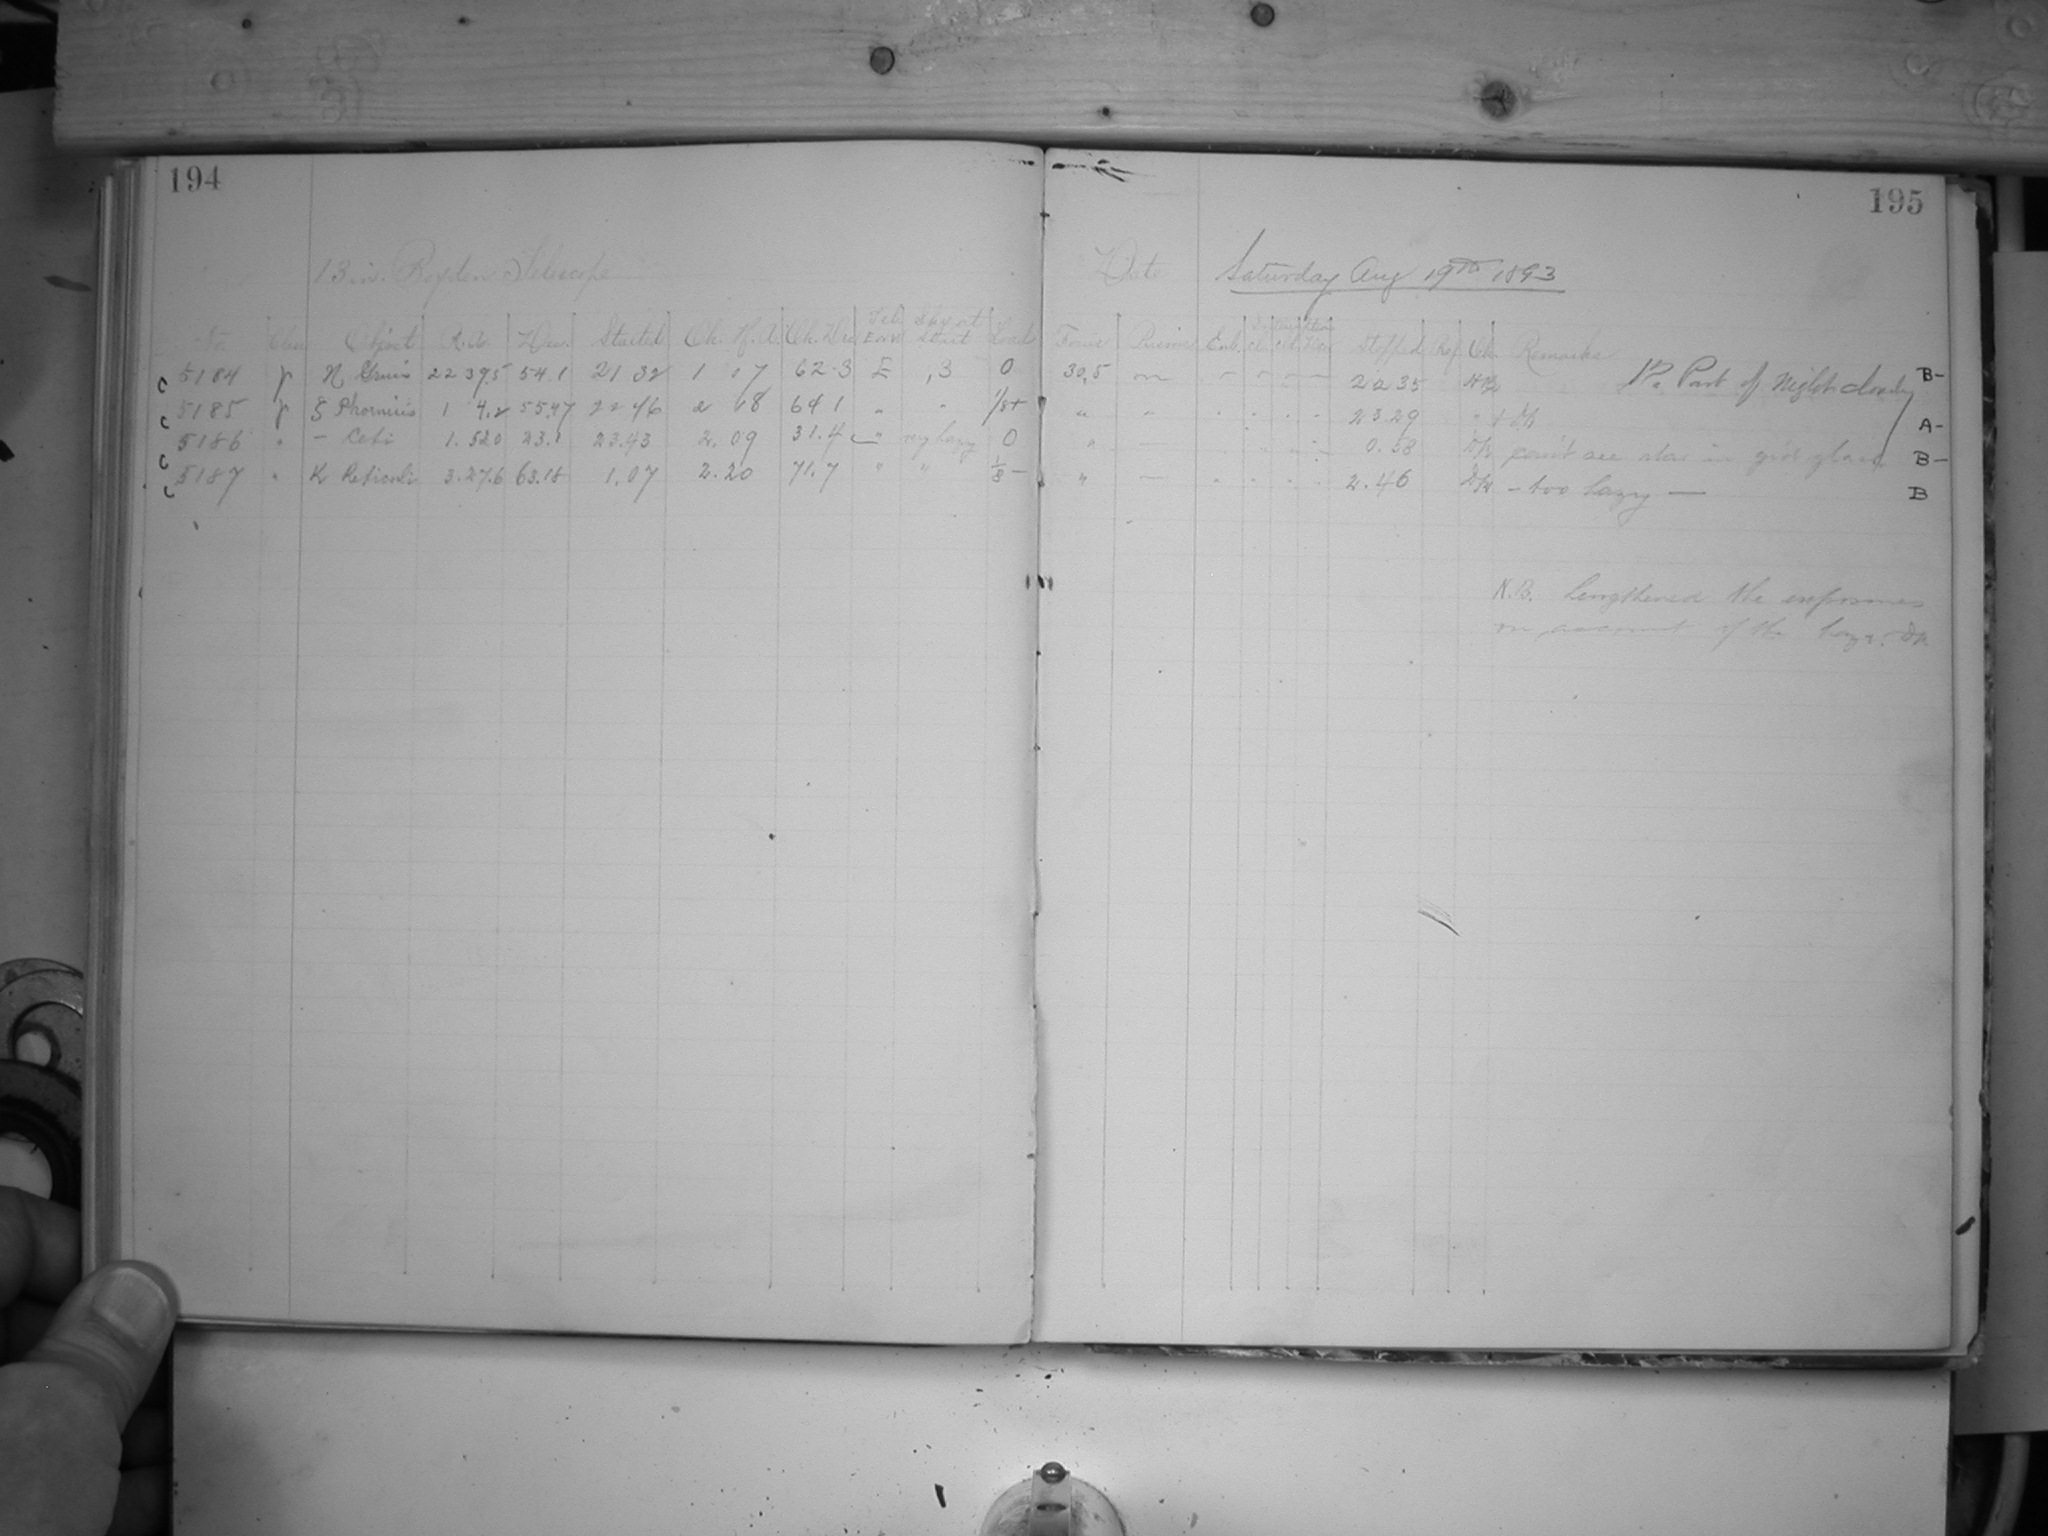 194
195
13 in. Boyden Telescope
Date Saturday Aug 19th 1893
No. Class Object R.A. Dec. Started Ch. H.A. Ch. Dec Tele E or W Sky at Start Load Focus Prisms Stopped Ch. Remarks
C 5184 γ Gruis 22 39,5 54.1 21 32 1 07 62.3 E ,3 0 30,5 22 35 Part of Night cloudy B-
C 5185 γ ξ Phoenicis 1 4.2 55.47 22 46 2 18 64 1 " " 1/8+ " " 23 29 A-
C 5186 " - Ceti 1.520 23.1 23.43 2.09 31.4 " very hazy 0 " 0.58 can't see star in g'd'g glass. B-
C 5187 " K Reticuli 3.27.6 63.18 1.07 2.20 71.7 " " 1/8 - " 2.46 - too hazy - B
N.B. Lengthened the exposures
on account of the haze.